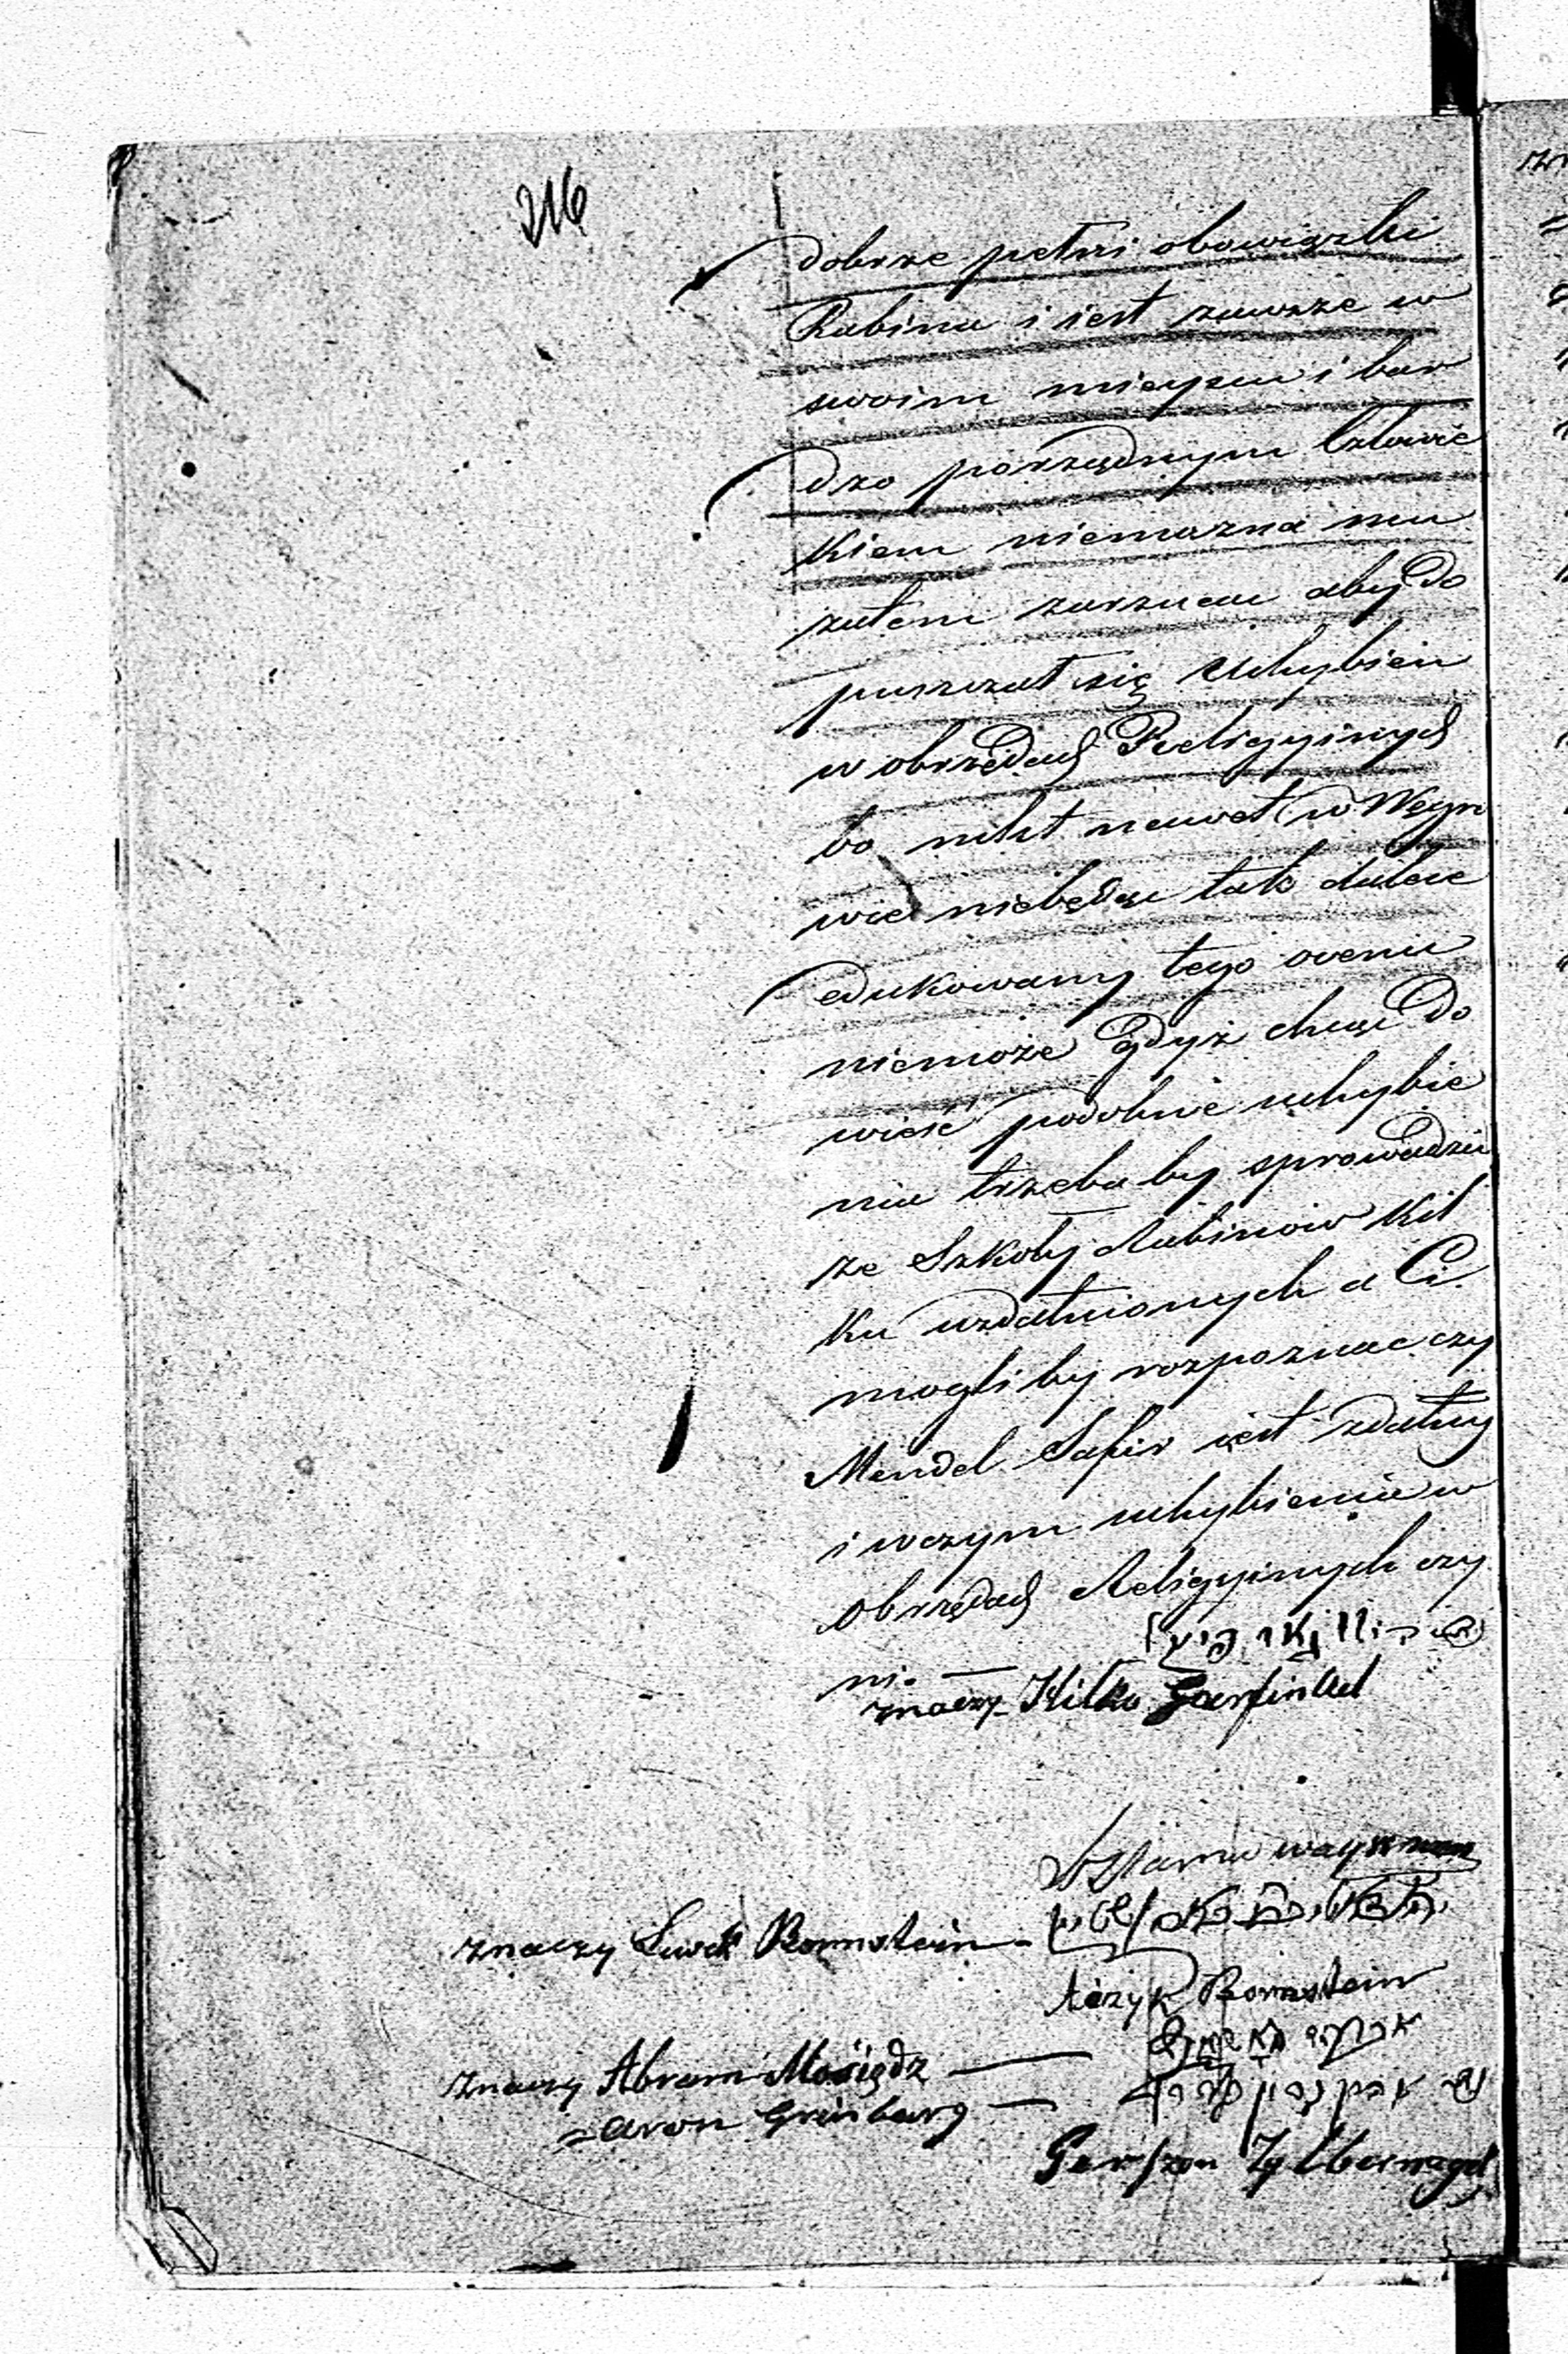 216
dobrze pełni obowiązki
Rabina i iest zawsze w
swoim mieyscu i bar
dzo porządnym Człowie
kiem niemozna mu
zatem zarzucac aby do
puszczał się Uchybien
w obrzędach Religyinych
bo nikt nawet w Węgro
wie niebędąc tak dalece
edukowany tego ocenic
niemoże gdyż chcąc do
wieść podobne uchybie
nia trzeba by sprowadzic
ze Szkoły Rabinow kil
ku uzdatnionych a Ci
mogli by rozpoznac czy
Mendel Safir iest zdatny
i wczym uchybienia w
obrzędach Religyinych czy
ni. —
znaczy Hilko Garfinkel
Szlama
znaczy Lewek Bornstein -
Bornstein
znaczy Abram Mosiądz —
= Aron Grinberg —
Gerszon Zylbernagel